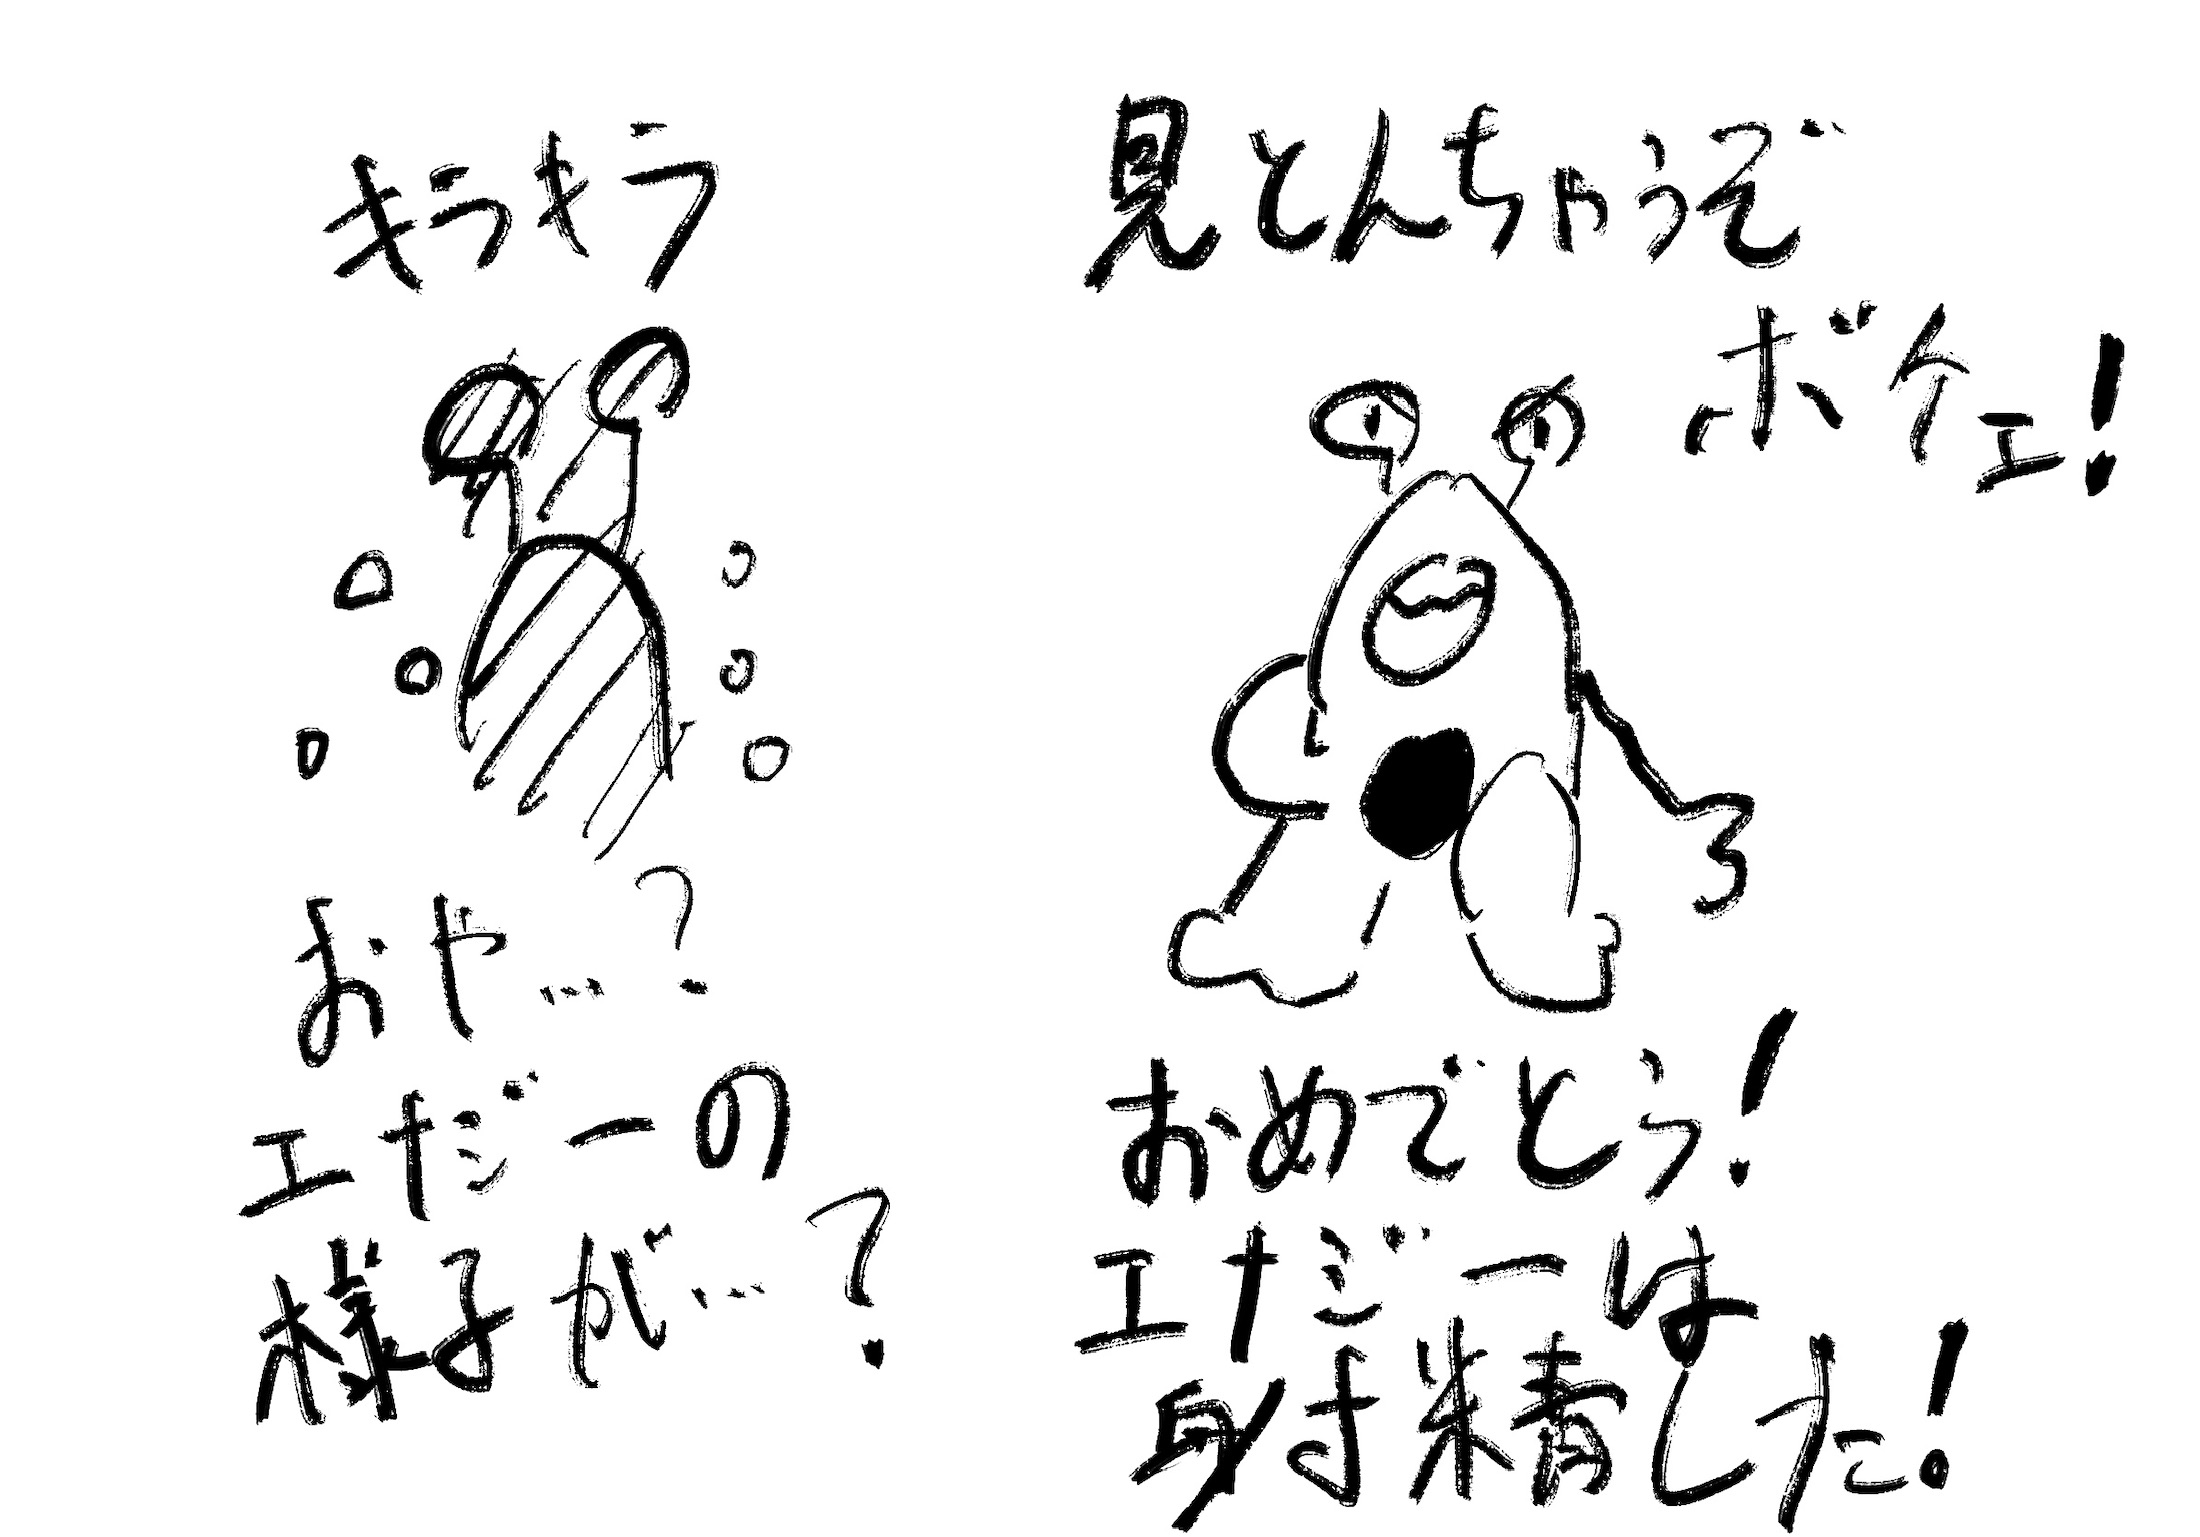 キラキラ
おや…?
エだーの
様子が…?
見とんちゃうぞ
ボケェ!
おめでとう!
エだーは
射精した!